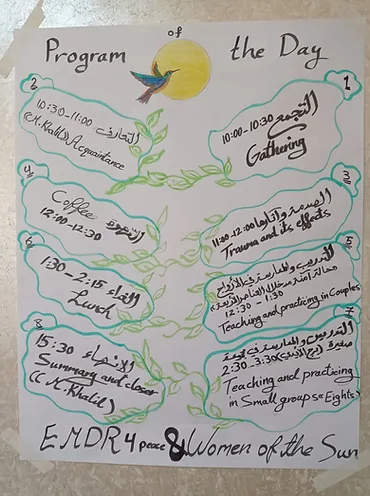 Program of the Day
1
التجمع
10:00-10:30
Gathering
2
10:30-11:00 التعارف
(M. Khalil) Acquaintance
3
الصدمة وآثارها
11:00-12:00
Trauma and its effects
4
Coffee القهوة
12:00-12:30
5
التدريب والممارسة في الأزواج
12:30 - 1:30
Teaching and practicing in Couples
6
1:30-2:15 الغداء
Lunch
7
التدريس والممارسة في
صغيرة
2:30-3:30
Teaching and practicing
in Small groups "Eights"
8
15:30 الانتهاء
Summary and closer
(M. Khalil)
EMDR 4 peace & Women of the Sun